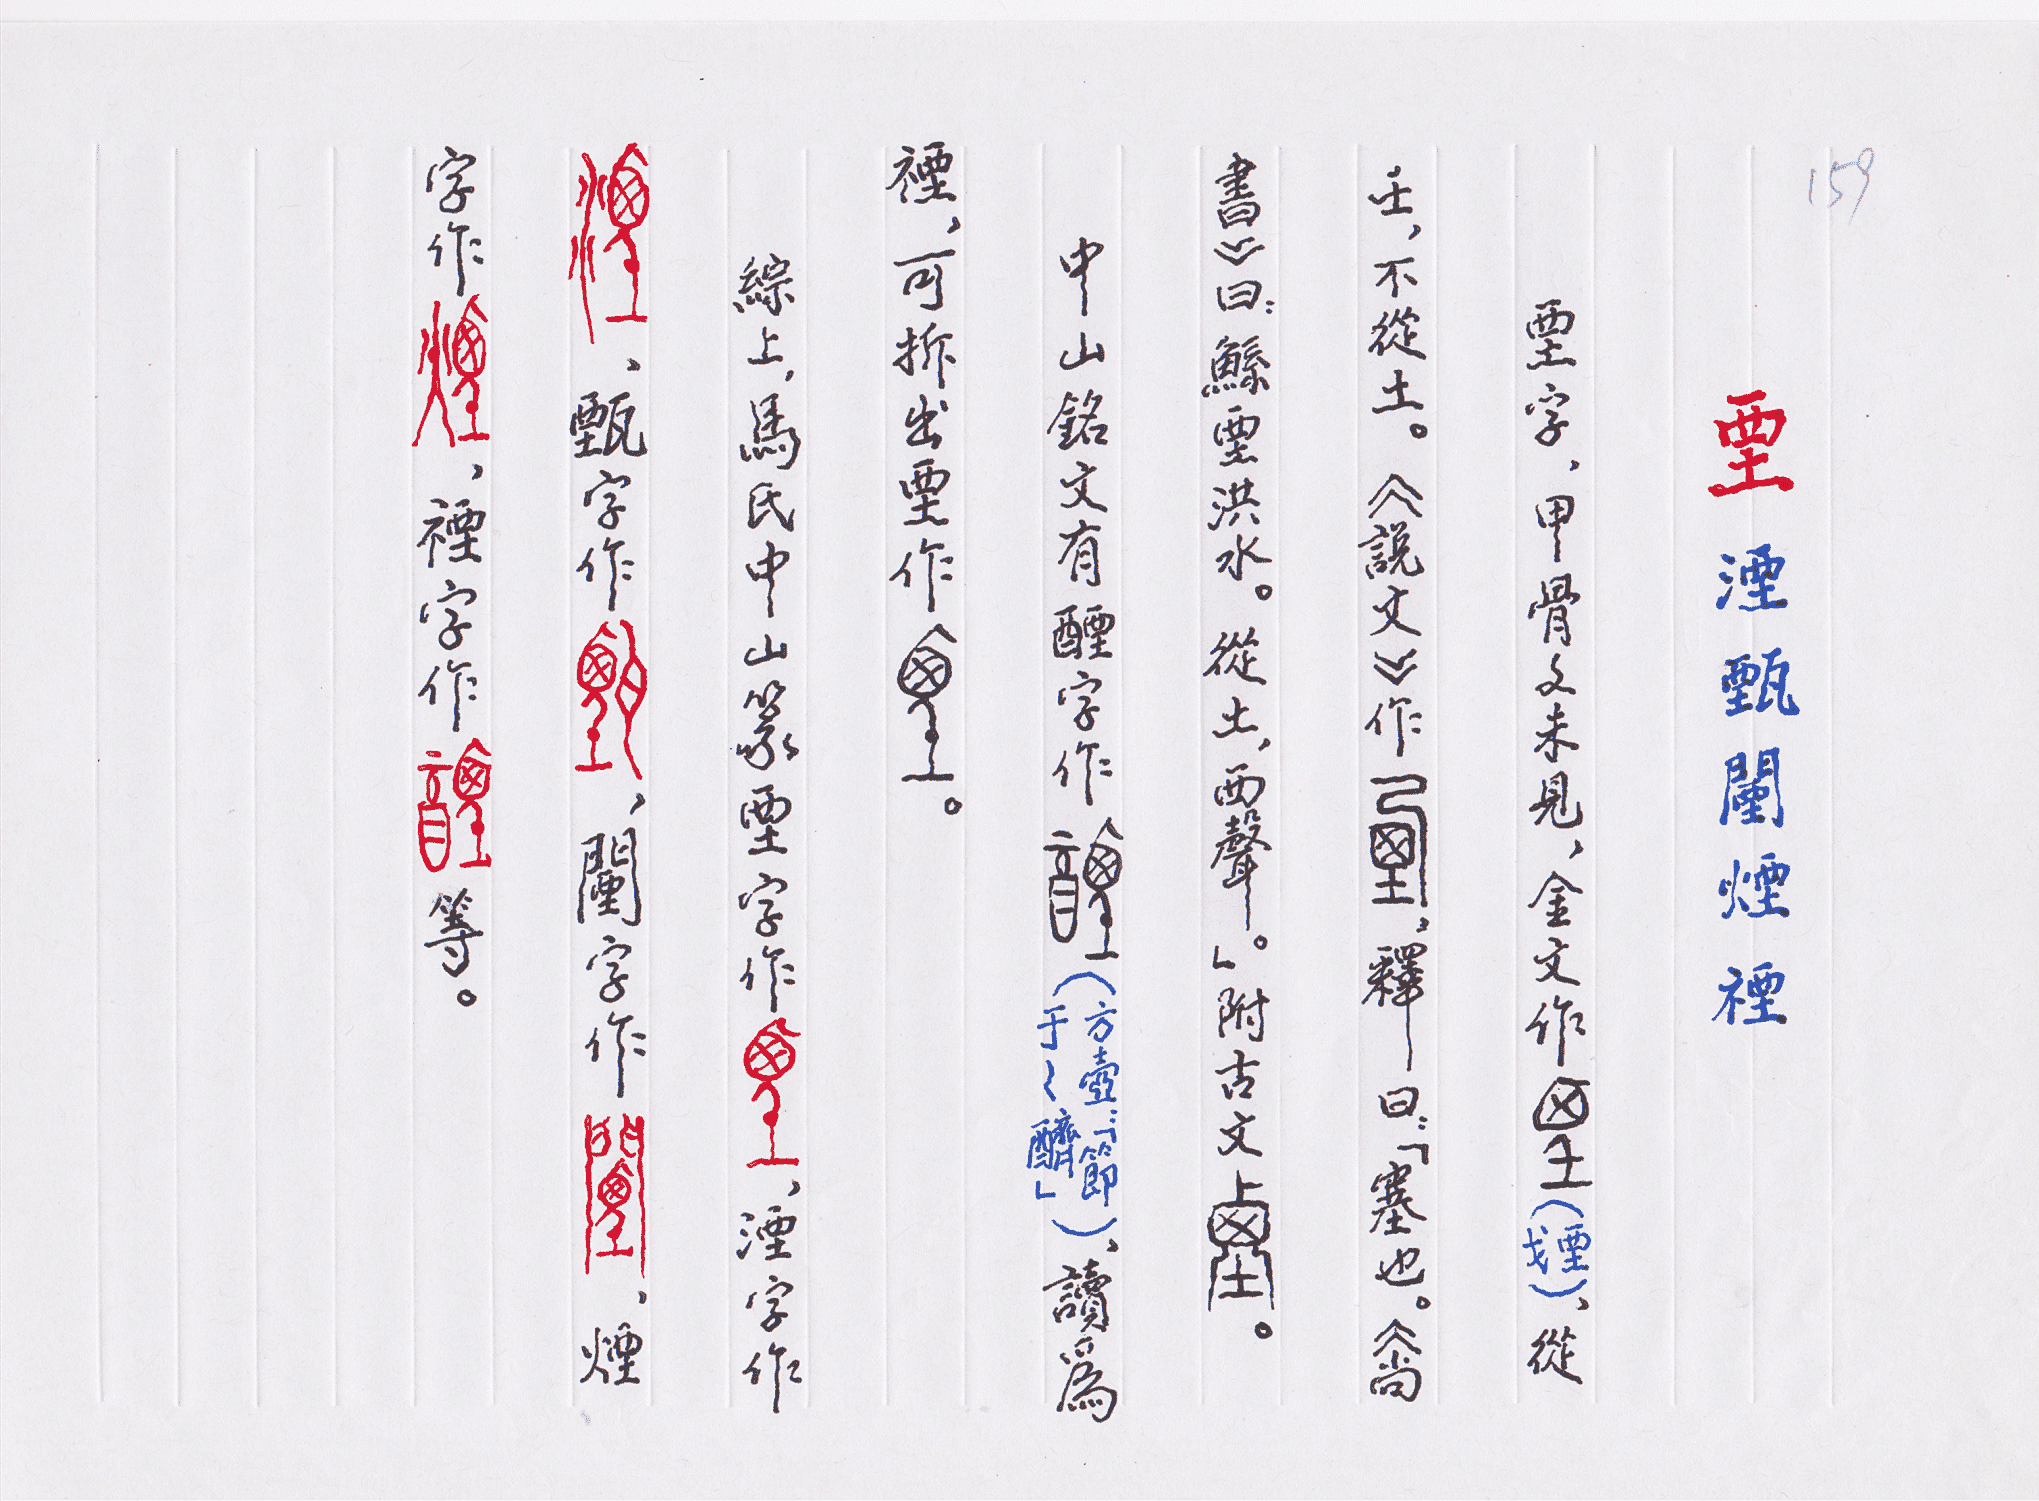 159
垔 湮 甄 闉 煙 禋
垔字，甲骨文未見，金文作（戈垔），從
𡈼，不從土。《說文》作，釋曰：「塞也。《尚
書》曰：鯀垔洪水。從土，西聲。」附古文。
中山銘文有醴字作（方壺：「節于〻醻」），讀爲
禋，可拆出垔作。
綜上，馬氏中山篆垔字作，湮字作
，甄字作，闉字作，煙
字作，禋字作等。